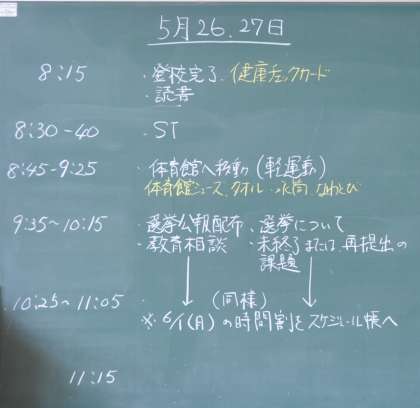 5月26.27日
8:15 ・登校完了. 健康チェックカード
・読書
8:30-40 ・ST
8:45-9:25 ・体育館へ移動(軽運動)
体育館シューズ、タオル・水筒・なわとび
9:35~10:15 ・選挙公報配布、選挙について
・教育相談 ・未終了または再提出の
課題
10:25~11:05 ・ (同様)
※ 6/1(月)の時間割をスケジュール帳へ
11:15